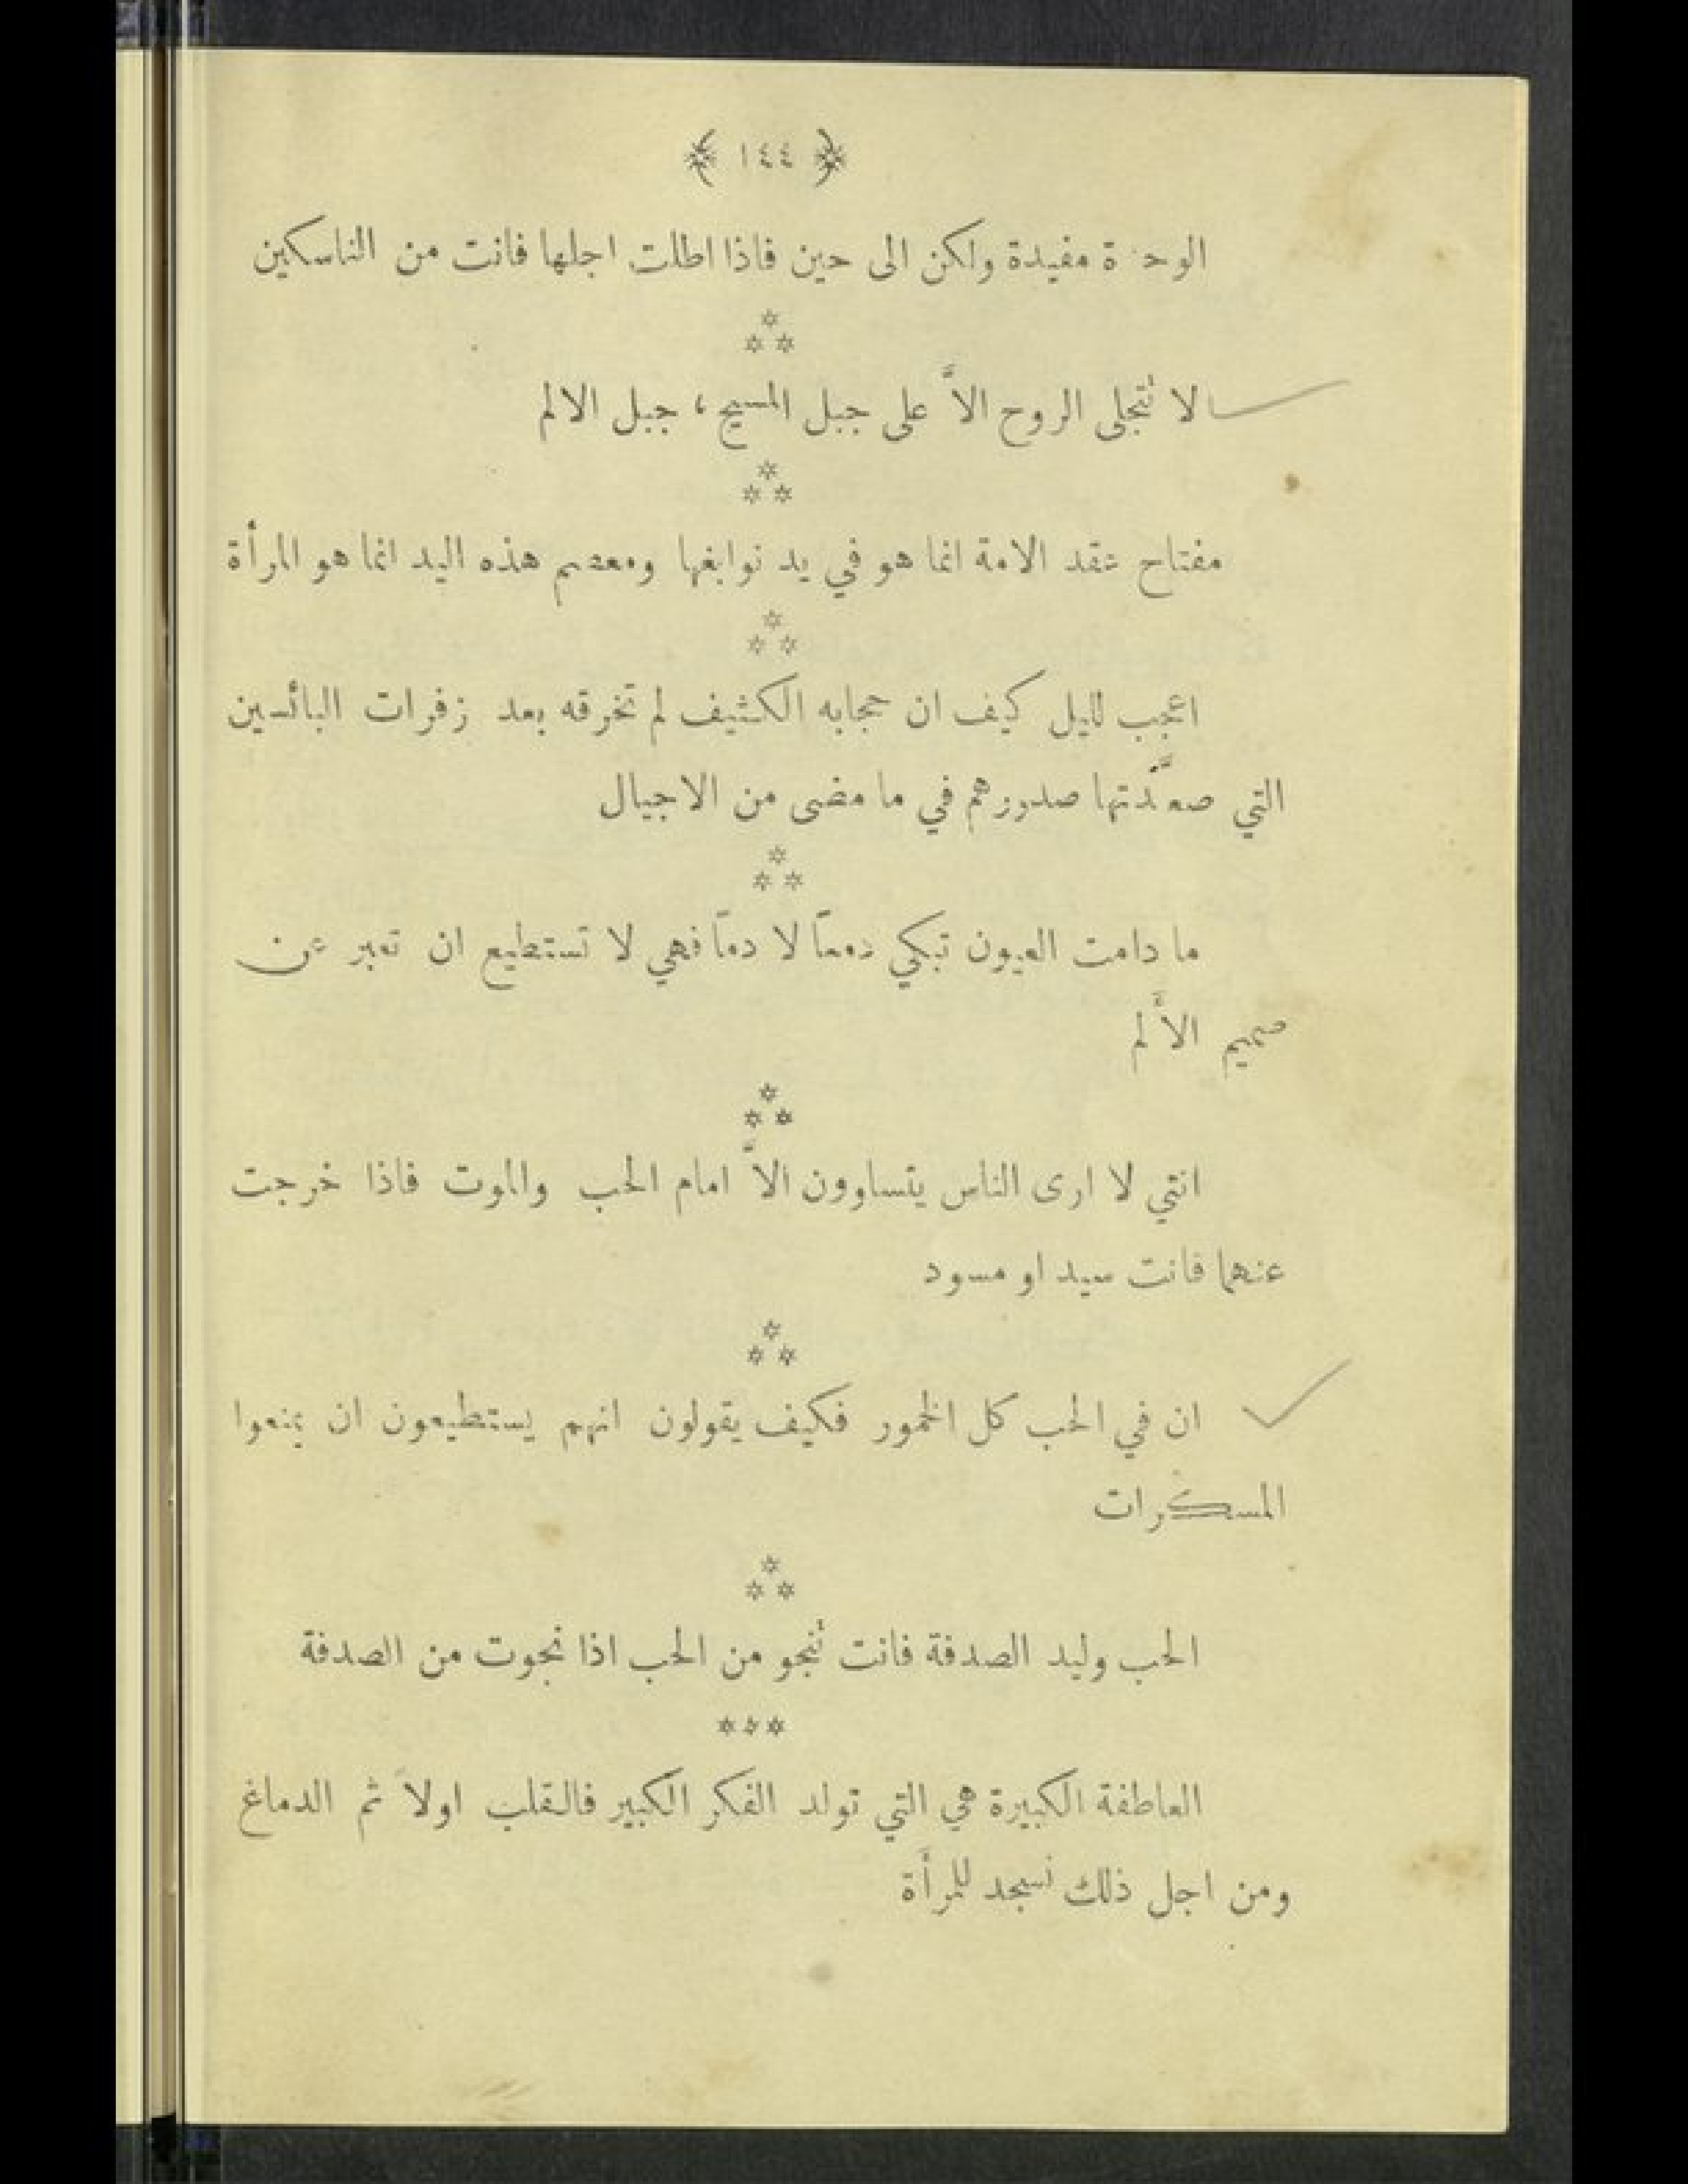 ١٤٤
الوحدة مفيدة ولكن الى حين فاذا اطلت اجلها فانت من الناسكين
لا تتجلى الروح الاَّ على جبل المسيح ، جبل الالم
مفتاح عقد الامة انما هو في يد نوابغها ومعصم هذه اليد انما هو المرأة
اعجب لليل كيف ان حجابه الكثيف لم تخرقه بعد زفرات البائسين
التي صعَّدتها صدورهم في ما مضى من الاجيال
ما دامت العيون تبكي دمعاً لا دماً فهي لا تستطيع ان تعبر عن
صميم الأَلم
انني لا ارى الناس يتساوون الاَّ امام الحب والموت فاذا خرجت
عنهما فانت سيد او مسود
ان في الحب كل الخمور فكيف يقولون انهم يستطيعون ان يمنعوا
المسكرات
الحب وليد الصدفة فانت تنجو من الحب اذا نجوت من الصدفة
***
العاطفة الكبيرة هي التي تولد الفكر الكبير فالقلب اولاً ثم الدماغ
ومن اجل ذلك نسجد للمرأَة